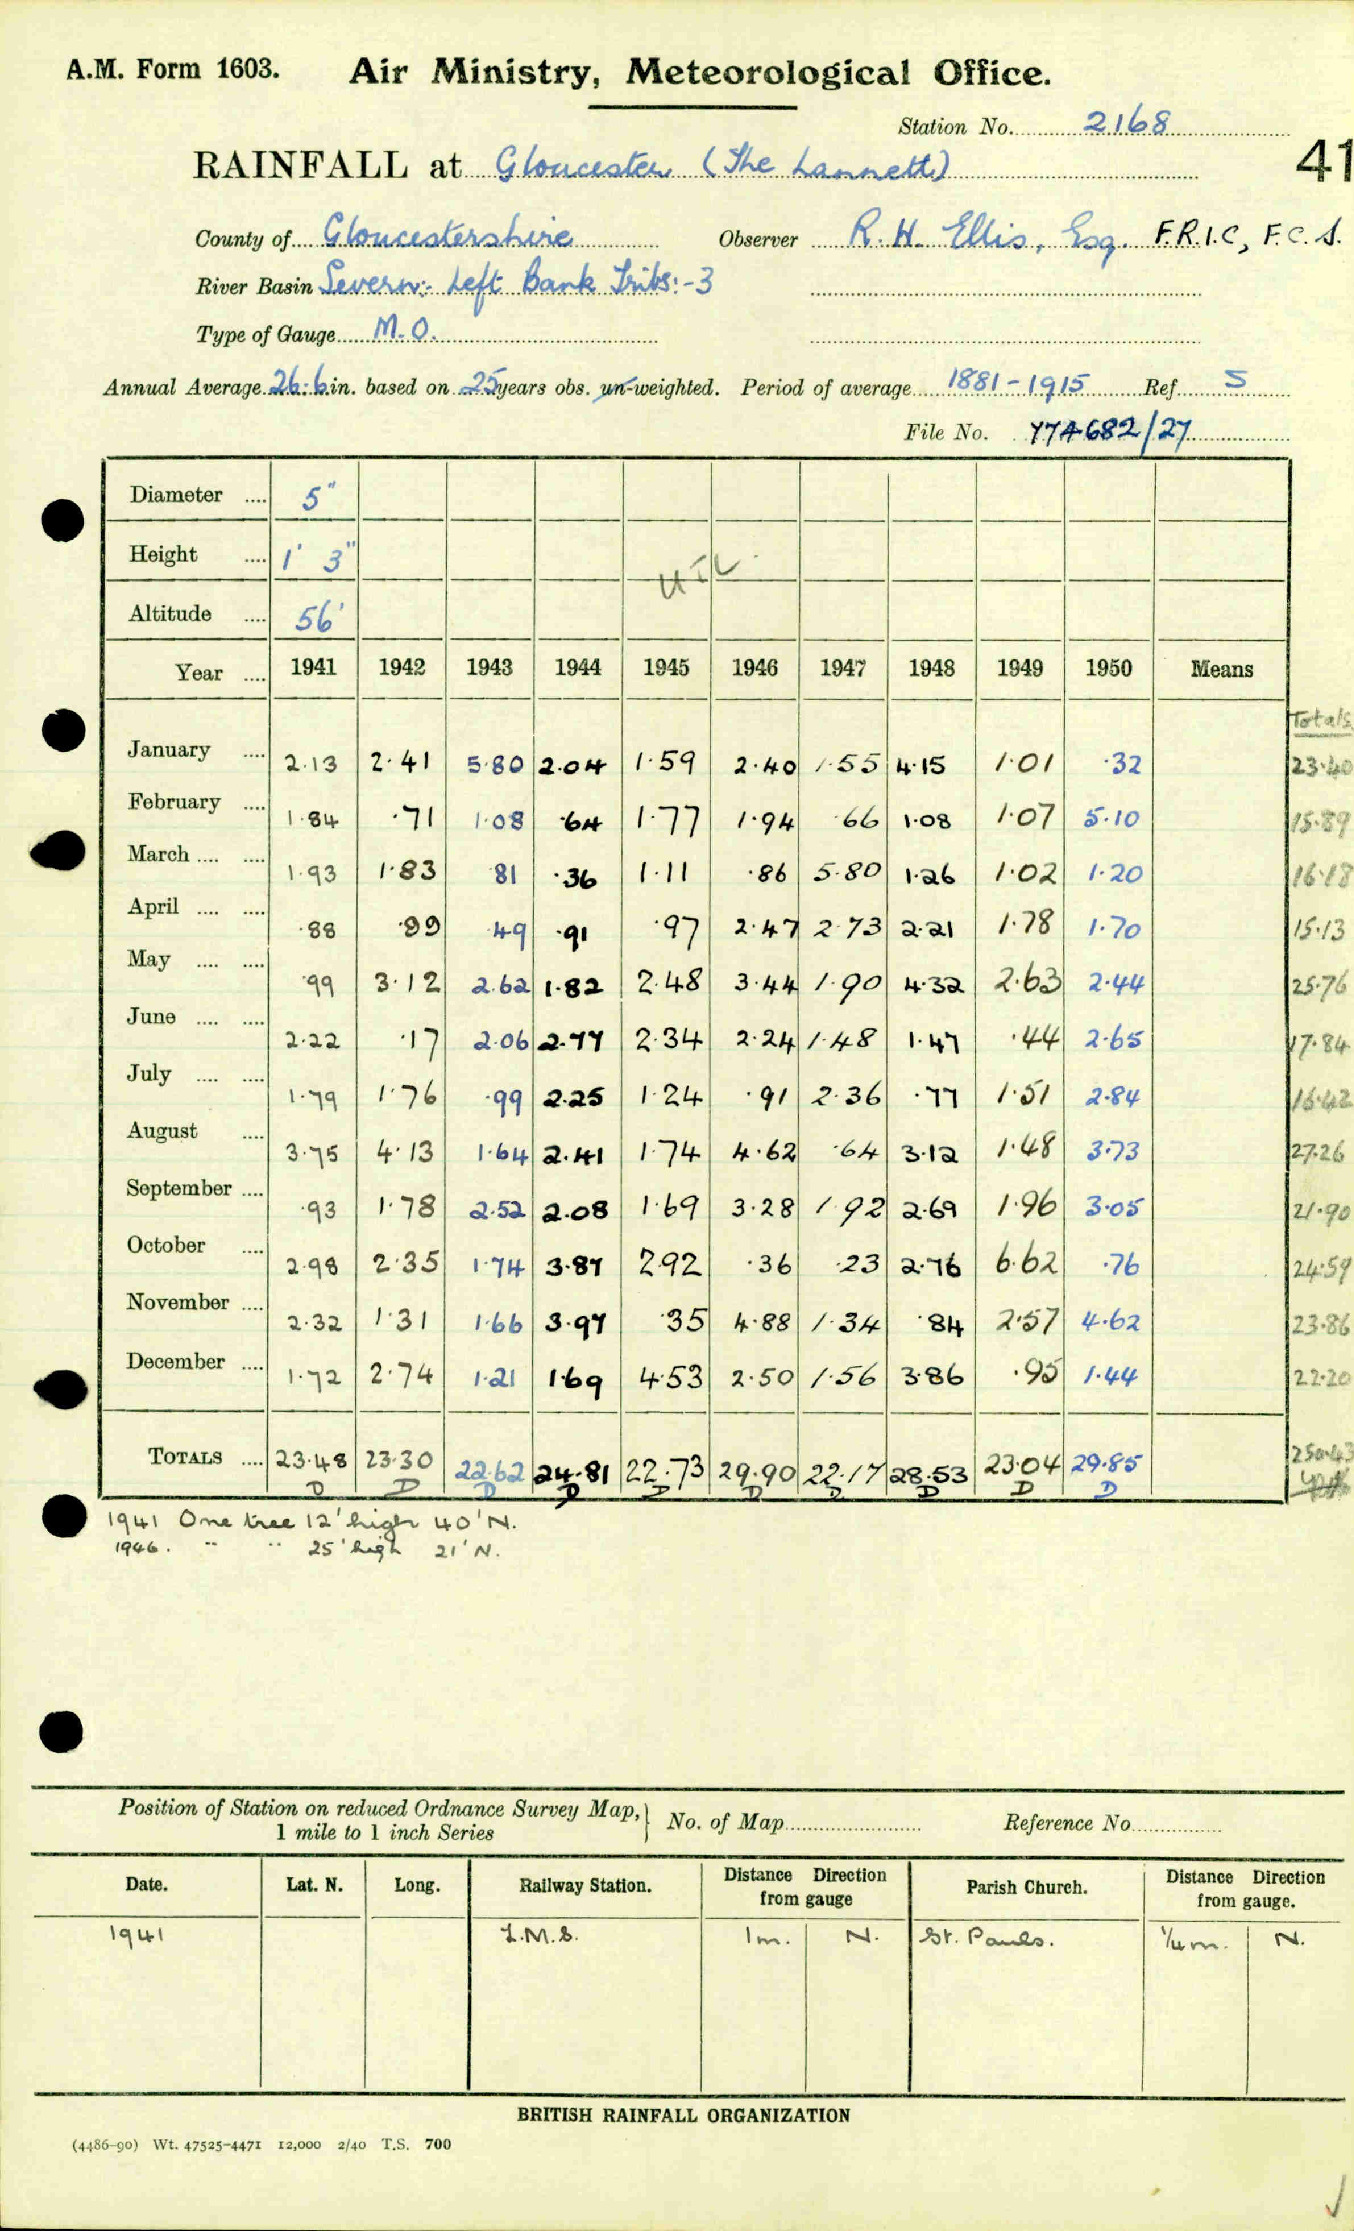 A.M. Form 1603. Air Ministry, Meteorological Office.
Station No. 2168
41
RAINFALL at Gloucester (The Lannett)
County of Gloucestershire Observer R. H. Ellis, Esq. F.R.I.C, F.C.S.
River Basin Severn:- Left Bank Tribs:-3
Type of Gauge M.O.
Annual Average 26.6 in. based on 25 years obs. un-weighted. Period of average 1881-1915 Ref. S
File No. YYA682/27
Diameter .... 5"
Height .... 1' 3"
UTL
Altitude .... 56'
Year .... 1941 1942 1943 1944 1945 1946 1947 1948 1949 1950 Means
Totals
January .... 2.13 2.41 5.80 2.04 1.59 2.40 1.55 4.15 1.01 .32 23.40
February .... 1.84 .71 1.08 .64 1.77 1.94 .66 1.08 1.07 5.10 15.89
March .... .... 1.93 1.83 .81 .36 1.11 .86 5.80 1.26 1.02 1.20 16.18
April .... .... .88 .99 .49 .91 .97 2.47 2.73 2.21 1.78 1.70 15.13
May .... .... .99 3.12 2.62 1.82 2.48 3.44 1.90 4.32 2.63 2.44 25.76
June .... .... 2.22 .17 2.06 2.77 2.34 2.24 1.48 1.47 .44 2.65 17.84
July .... .... 1.79 1.76 .99 2.25 1.24 .91 2.36 .77 1.51 2.84 16.42
August .... 3.75 4.13 1.64 2.41 1.74 4.62 .64 3.12 1.48 3.73 27.26
September .... .93 1.78 2.52 2.08 1.69 3.28 1.92 2.69 1.96 3.05 21.90
October .... 2.98 2.35 1.74 3.87 2.92 .36 .23 2.76 6.62 .76 24.59
November .... 2.32 1.31 1.66 3.97 .35 4.88 1.34 .84 2.57 4.62 23.86
December .... 1.72 2.74 1.21 1.69 4.53 2.50 1.56 3.86 .95 1.44 22.20
TOTALS .... 23.48 23.30 22.62 24.81 22.73 29.90 22.17 28.53 23.04 29.85 250.43
D D D D D D D D D D
1941 One tree 12' high 40' N.
1946. " " 25' high 21' N.
Position of Station on reduced Ordnance Survey Map, 1 mile to 1 inch Series No. of Map Reference No.
Date. Lat. N. Long. Railway Station. Distance Direction from gauge Parish Church. Distance Direction from gauge.
1941 L.M.S. 1m. N. St. Pauls. 1/4 m. N.
BRITISH RAINFALL ORGANIZATION
(4486-90) Wt. 47525-4471 12,000 2/40 T.S. 700